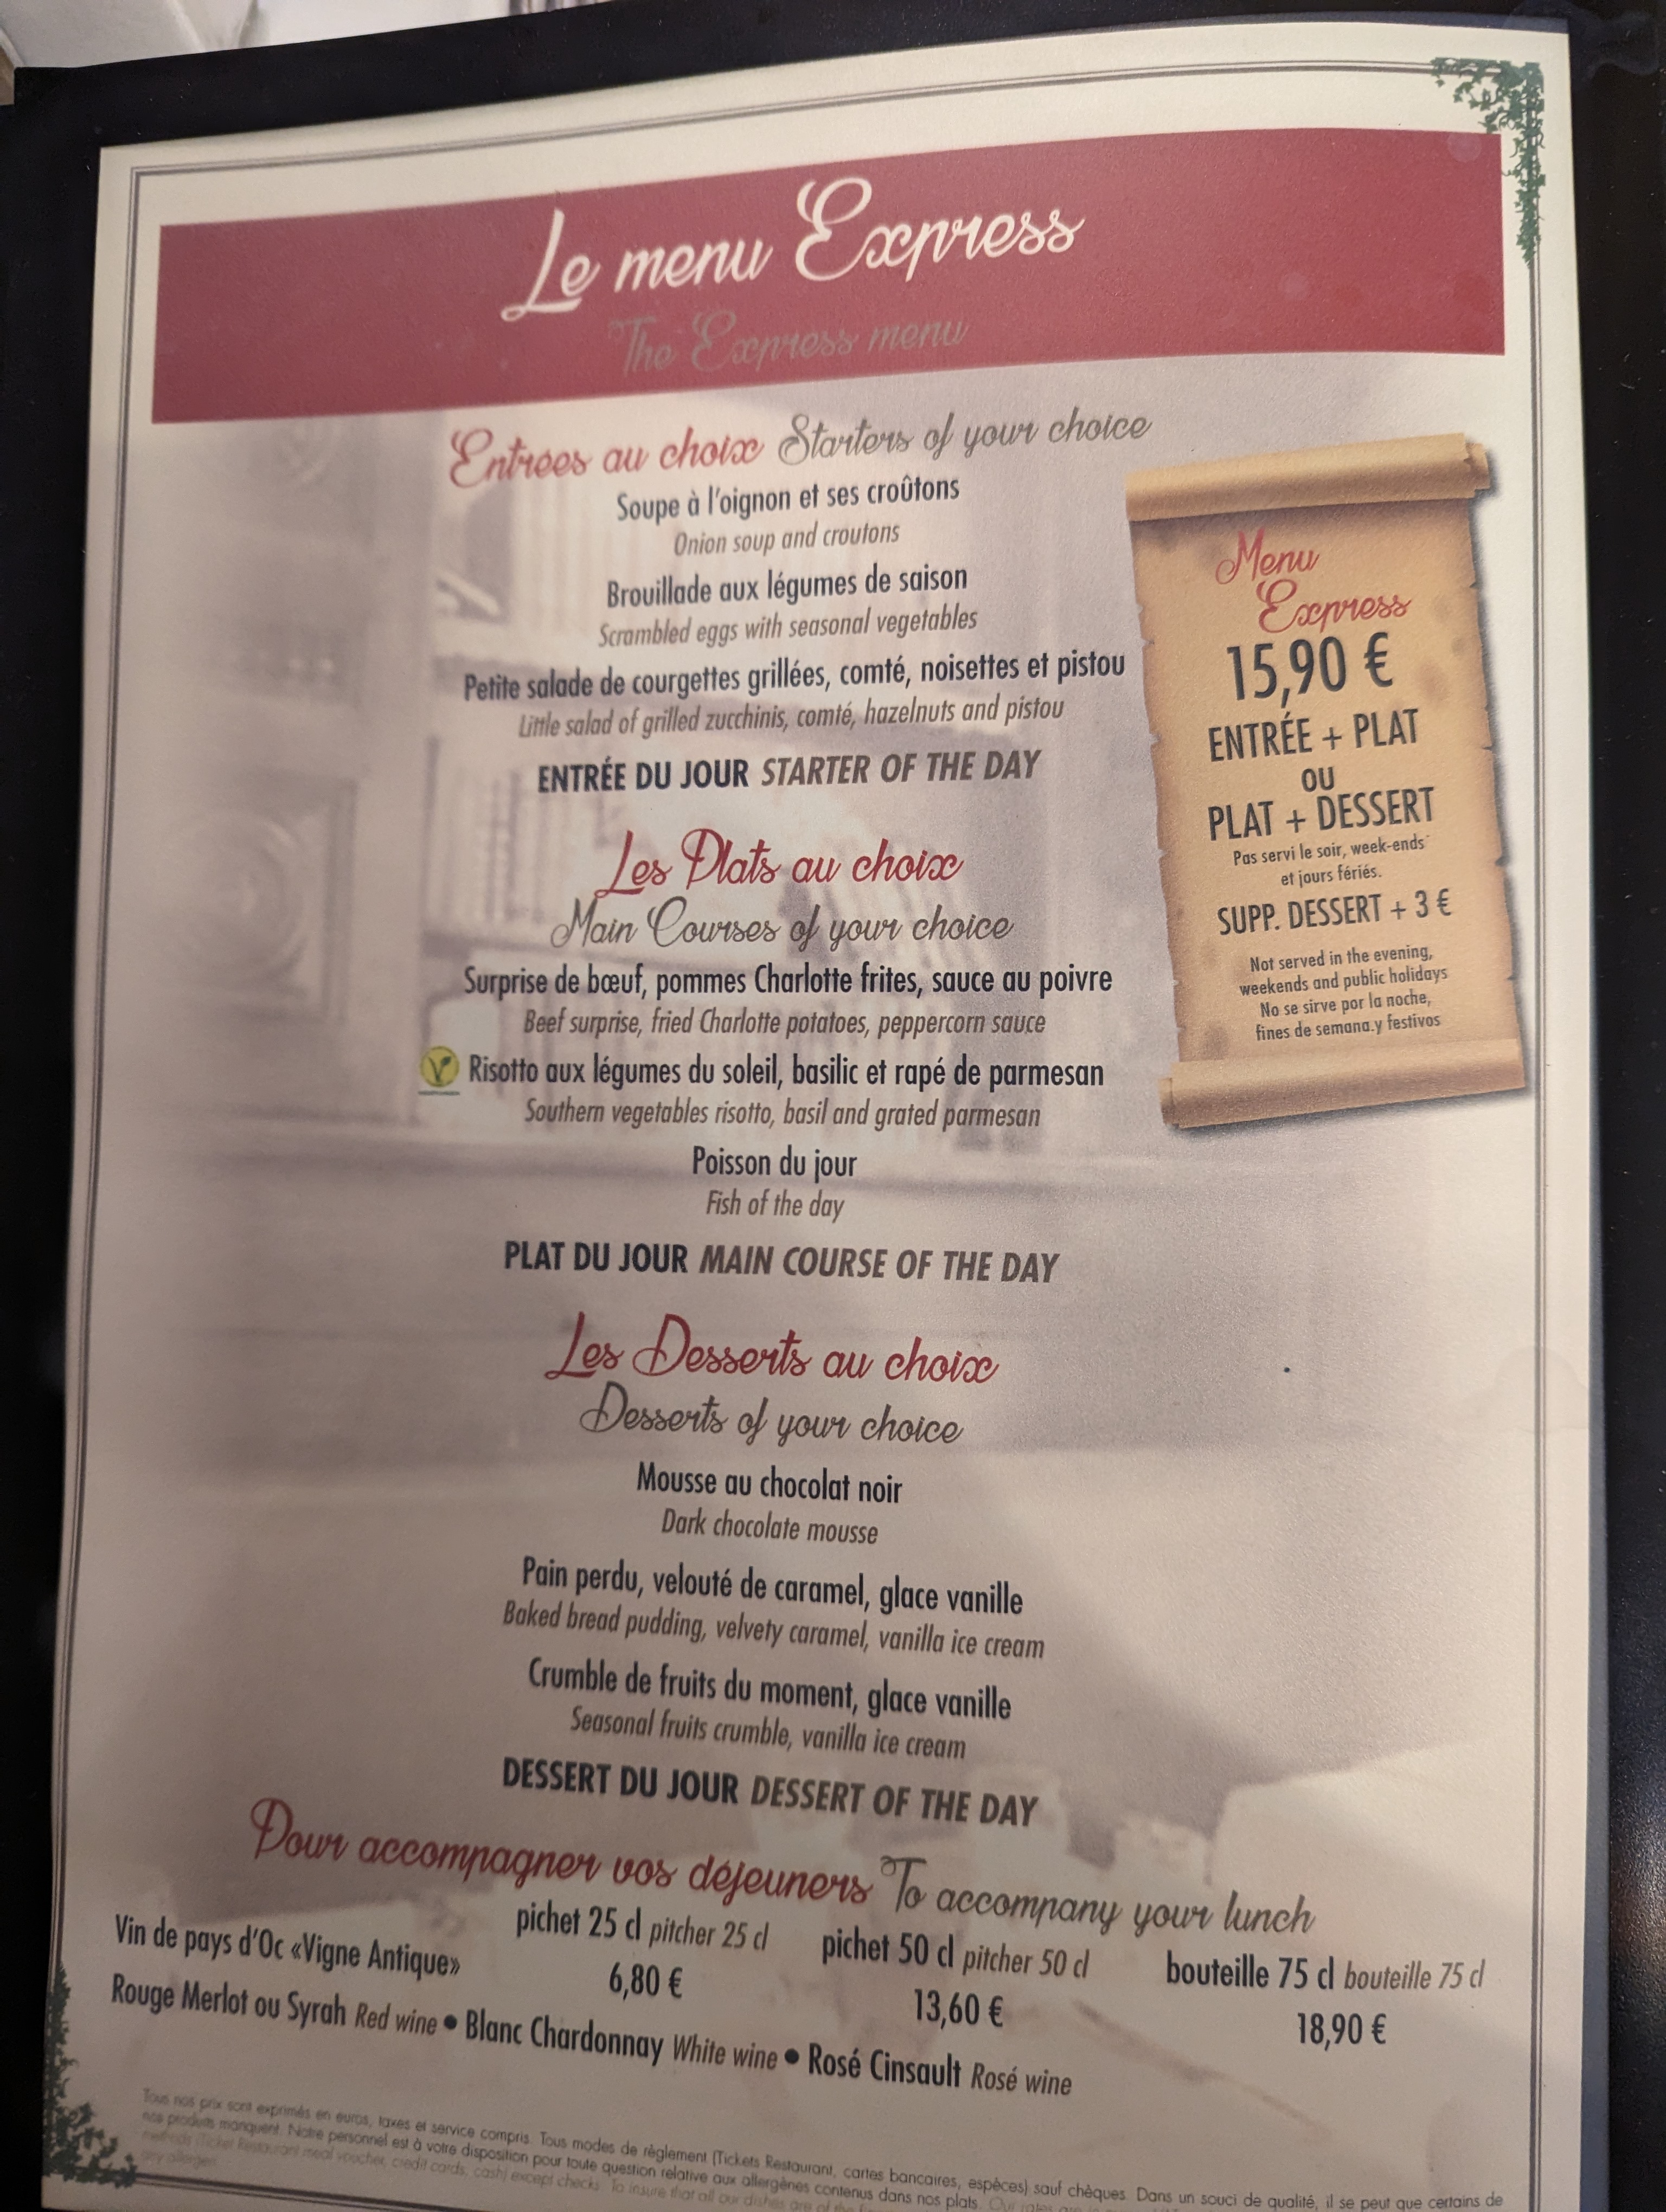 Le menu Express
The Express menu
Entrées au choix Starters of your choice
Soupe à l'oignon et ses croûtons
Onion soup and croutons
Brouillade aux légumes de saison
Scrambled eggs with seasonal vegetables
Petite salade de courgettes grillées, comté, noisettes et pistou
Little salad of grilled zucchinis, comté, hazelnuts and pistou
ENTRÉE DU JOUR STARTER OF THE DAY
Menu
Express
15,90 €
ENTRÉE + PLAT
OU
PLAT + DESSERT
Pas servi le soir, week-ends
et jours fériés.
SUPP. DESSERT + 3 €
Not served in the evening,
weekends and public holidays
No se sirve por la noche,
fines de semana.y festivos
Les Plats au choix
Main Courses of your choice
Surprise de bœuf, pommes Charlotte frites, sauce au poivre
Beef surprise, fried Charlotte potatoes, peppercorn sauce
V Risotto aux légumes du soleil, basilic et rapé de parmesan
Southern vegetables risotto, basil and grated parmesan
Poisson du jour
Fish of the day
PLAT DU JOUR MAIN COURSE OF THE DAY
Les Desserts au choix
Desserts of your choice
Mousse au chocolat noir
Dark chocolate mousse
Pain perdu, velouté de caramel, glace vanille
Baked bread pudding, velvety caramel, vanilla ice cream
Crumble de fruits du moment, glace vanille
Seasonal fruits crumble, vanilla ice cream
DESSERT DU JOUR DESSERT OF THE DAY
Pour accompagner vos déjeuners To accompany your lunch
pichet 25 cl pitcher 25 cl pichet 50 cl pitcher 50 cl bouteille 75 cl bouteille 75 cl
Vin de pays d'Oc «Vigne Antique» 6,80 € 13,60 € 18,90 €
Rouge Merlot ou Syrah Red wine • Blanc Chardonnay White wine • Rosé Cinsault Rosé wine
Tous nos prix sont exprimés en euros, taxes et service compris. Tous modes de règlement (Tickets Restaurant, cartes bancaires, espèces) sauf chèques. Dans un souci de qualité, il se peut que certains de
nos produits manquent. Notre personnel est à votre disposition pour toute question relative aux allergènes contenus dans nos plats. Our rates are
methods (Ticket Restaurant meal voucher, credit cards, cash) except checks. To insure that all our dishes are of the
any allergen